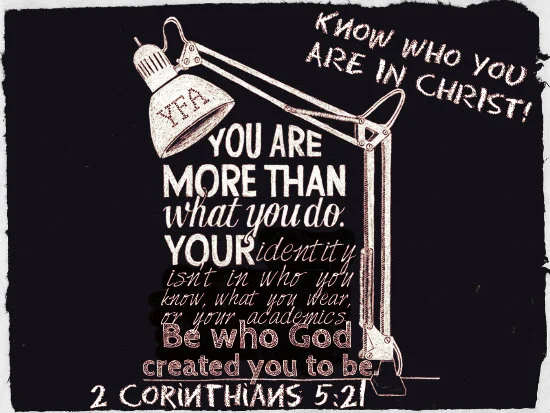 KNOW WHO YOU
ARE IN CHRIST!
YFA
YOU ARE
MORE THAN
what you do.
YOUR identity
isn't in who you
know, what you wear,
or your academics.
Be who God
created you to be.
2 CORINTHIANS 5:21